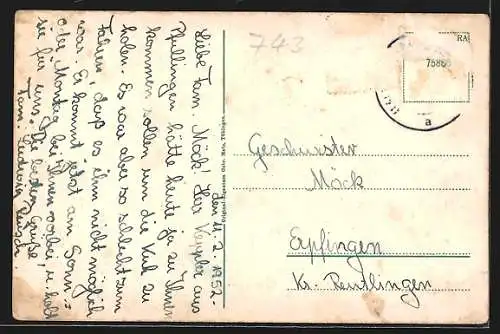 den 11. 2. 1952.
Liebe Fam. Möck! Der Keppler aus
Pfullingen hätte heute ja zu Ihnen
kommen sollen um die Kuh zu
holen. Es war aber so schlecht zum
fahren, daß es ihm nicht möglich
war. Er kommt jetzt am Sonn-
o der Montag bei Ihnen vorbei u. holt
sie für uns. Die besten Grüße,
Fam. Ludwig
743
RA
75868
a
Geschwister
Möck
Erpfingen
Kr. Reutlingen